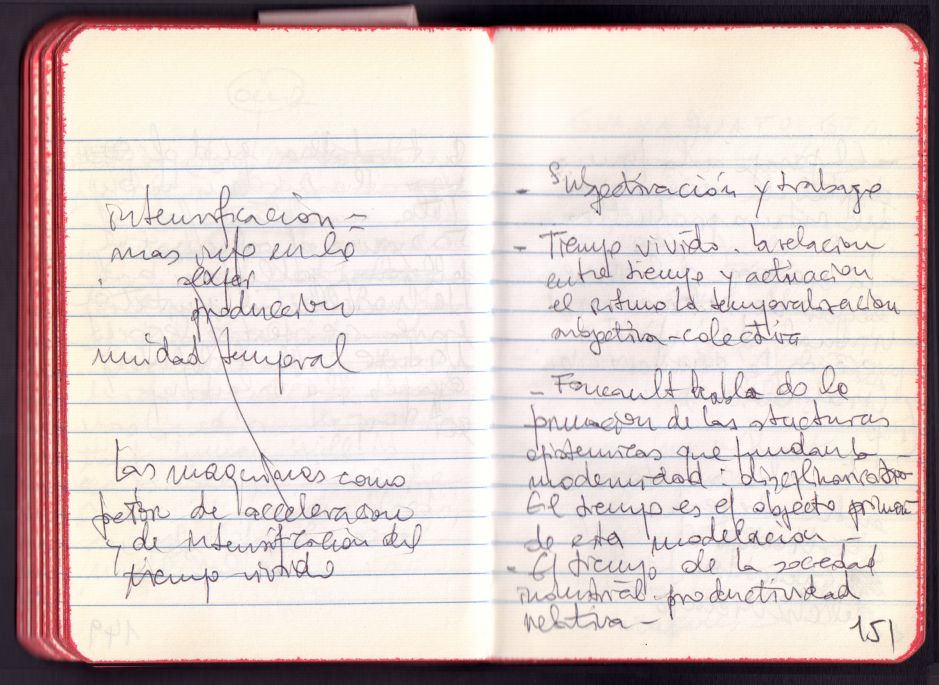 intensificación –
mas info en la
produccion
unidad temporal
Las maquinas como
fator de acceleracion
y de intensificación del
tiempo vivido
- Subjectivación y trabajo
- Tiempo vivido. la relacion
entre tiempo y actuacion
el ritmo la temporalizacion
subjectiva-colectiva
- Foucault habla de la
de las structuras
epistemicas que fundan la
modernidad:
El tiempo es el objecto
de esta modelacion –
- El tiempo de la sociedad
industrial. productividad
relativa –
151